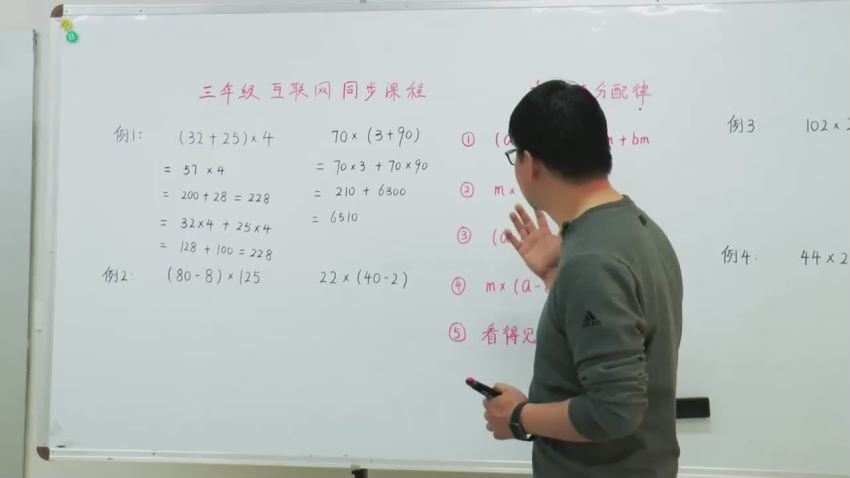 三年级 互联网 同步课程
分配律
例1: (32+25)×4
= 57 ×4
= 200+28 = 228
= 32×4 + 25×4
= 128 + 100 = 228
70×(3+90)
= 70×3 + 70×90
= 210 + 6300
= 6510
例2: (80-8)×125
22×(40-2)
① (a + bm
② m×
③ (a
④ m×(a-
⑤ 看得见
例3 102×2
例4: 44×2
adidas